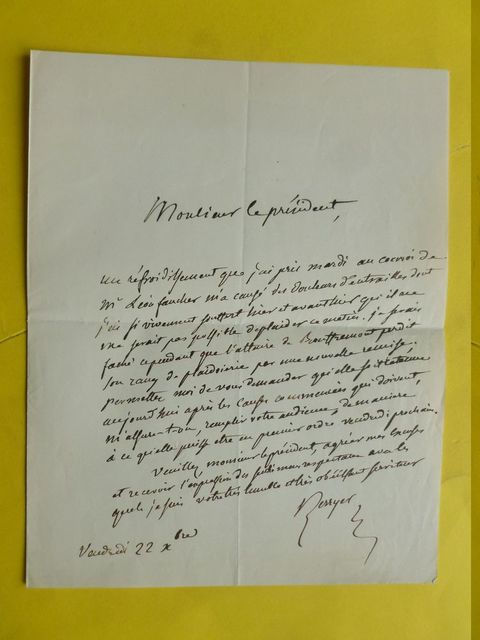 Monsieur le président,
un réfroidissement que j'ai pris mardi au convoi de
Mr Léon faucher m'a causé des douleurs d'entrailles dont
j'ai si vivement souffert hier et avant hier qu'il ne
me serait pas possible de plaider ce matin. je serais
faché cependant que l'affaire de Bauffremont perdit
son rang de plaidoirie par une nouvelle remise.
permettez moi de vous demander qu'elle soit retenue
aujourd'hui après les causes commencées qui doivent,
m'assure-t-on, remplir votre audience, de manière
à ce qu'elle puisse etre en premier ordre vendredi prochain.
Veuillez, monsieur le président, agréer mes excuses
et recevoir l'expression des sentimens respectueux avec les
quels je suis votre très humble et très obéissant serviteur
Berryer
Vendredi 22 xbre